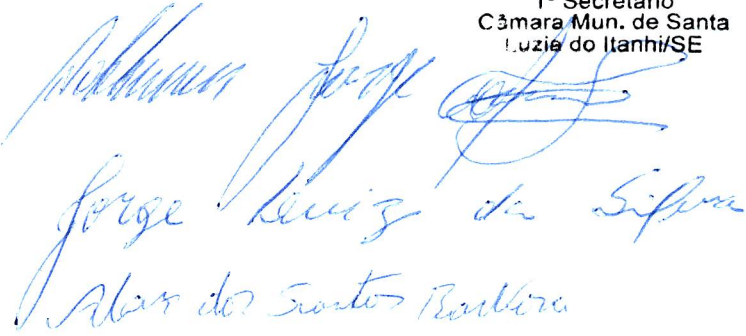 1º Secretário
Câmara Mun. de Santa
Luzia do Itanhi/SE
Jorge
Jorge Luiz da Silva
dos Santos